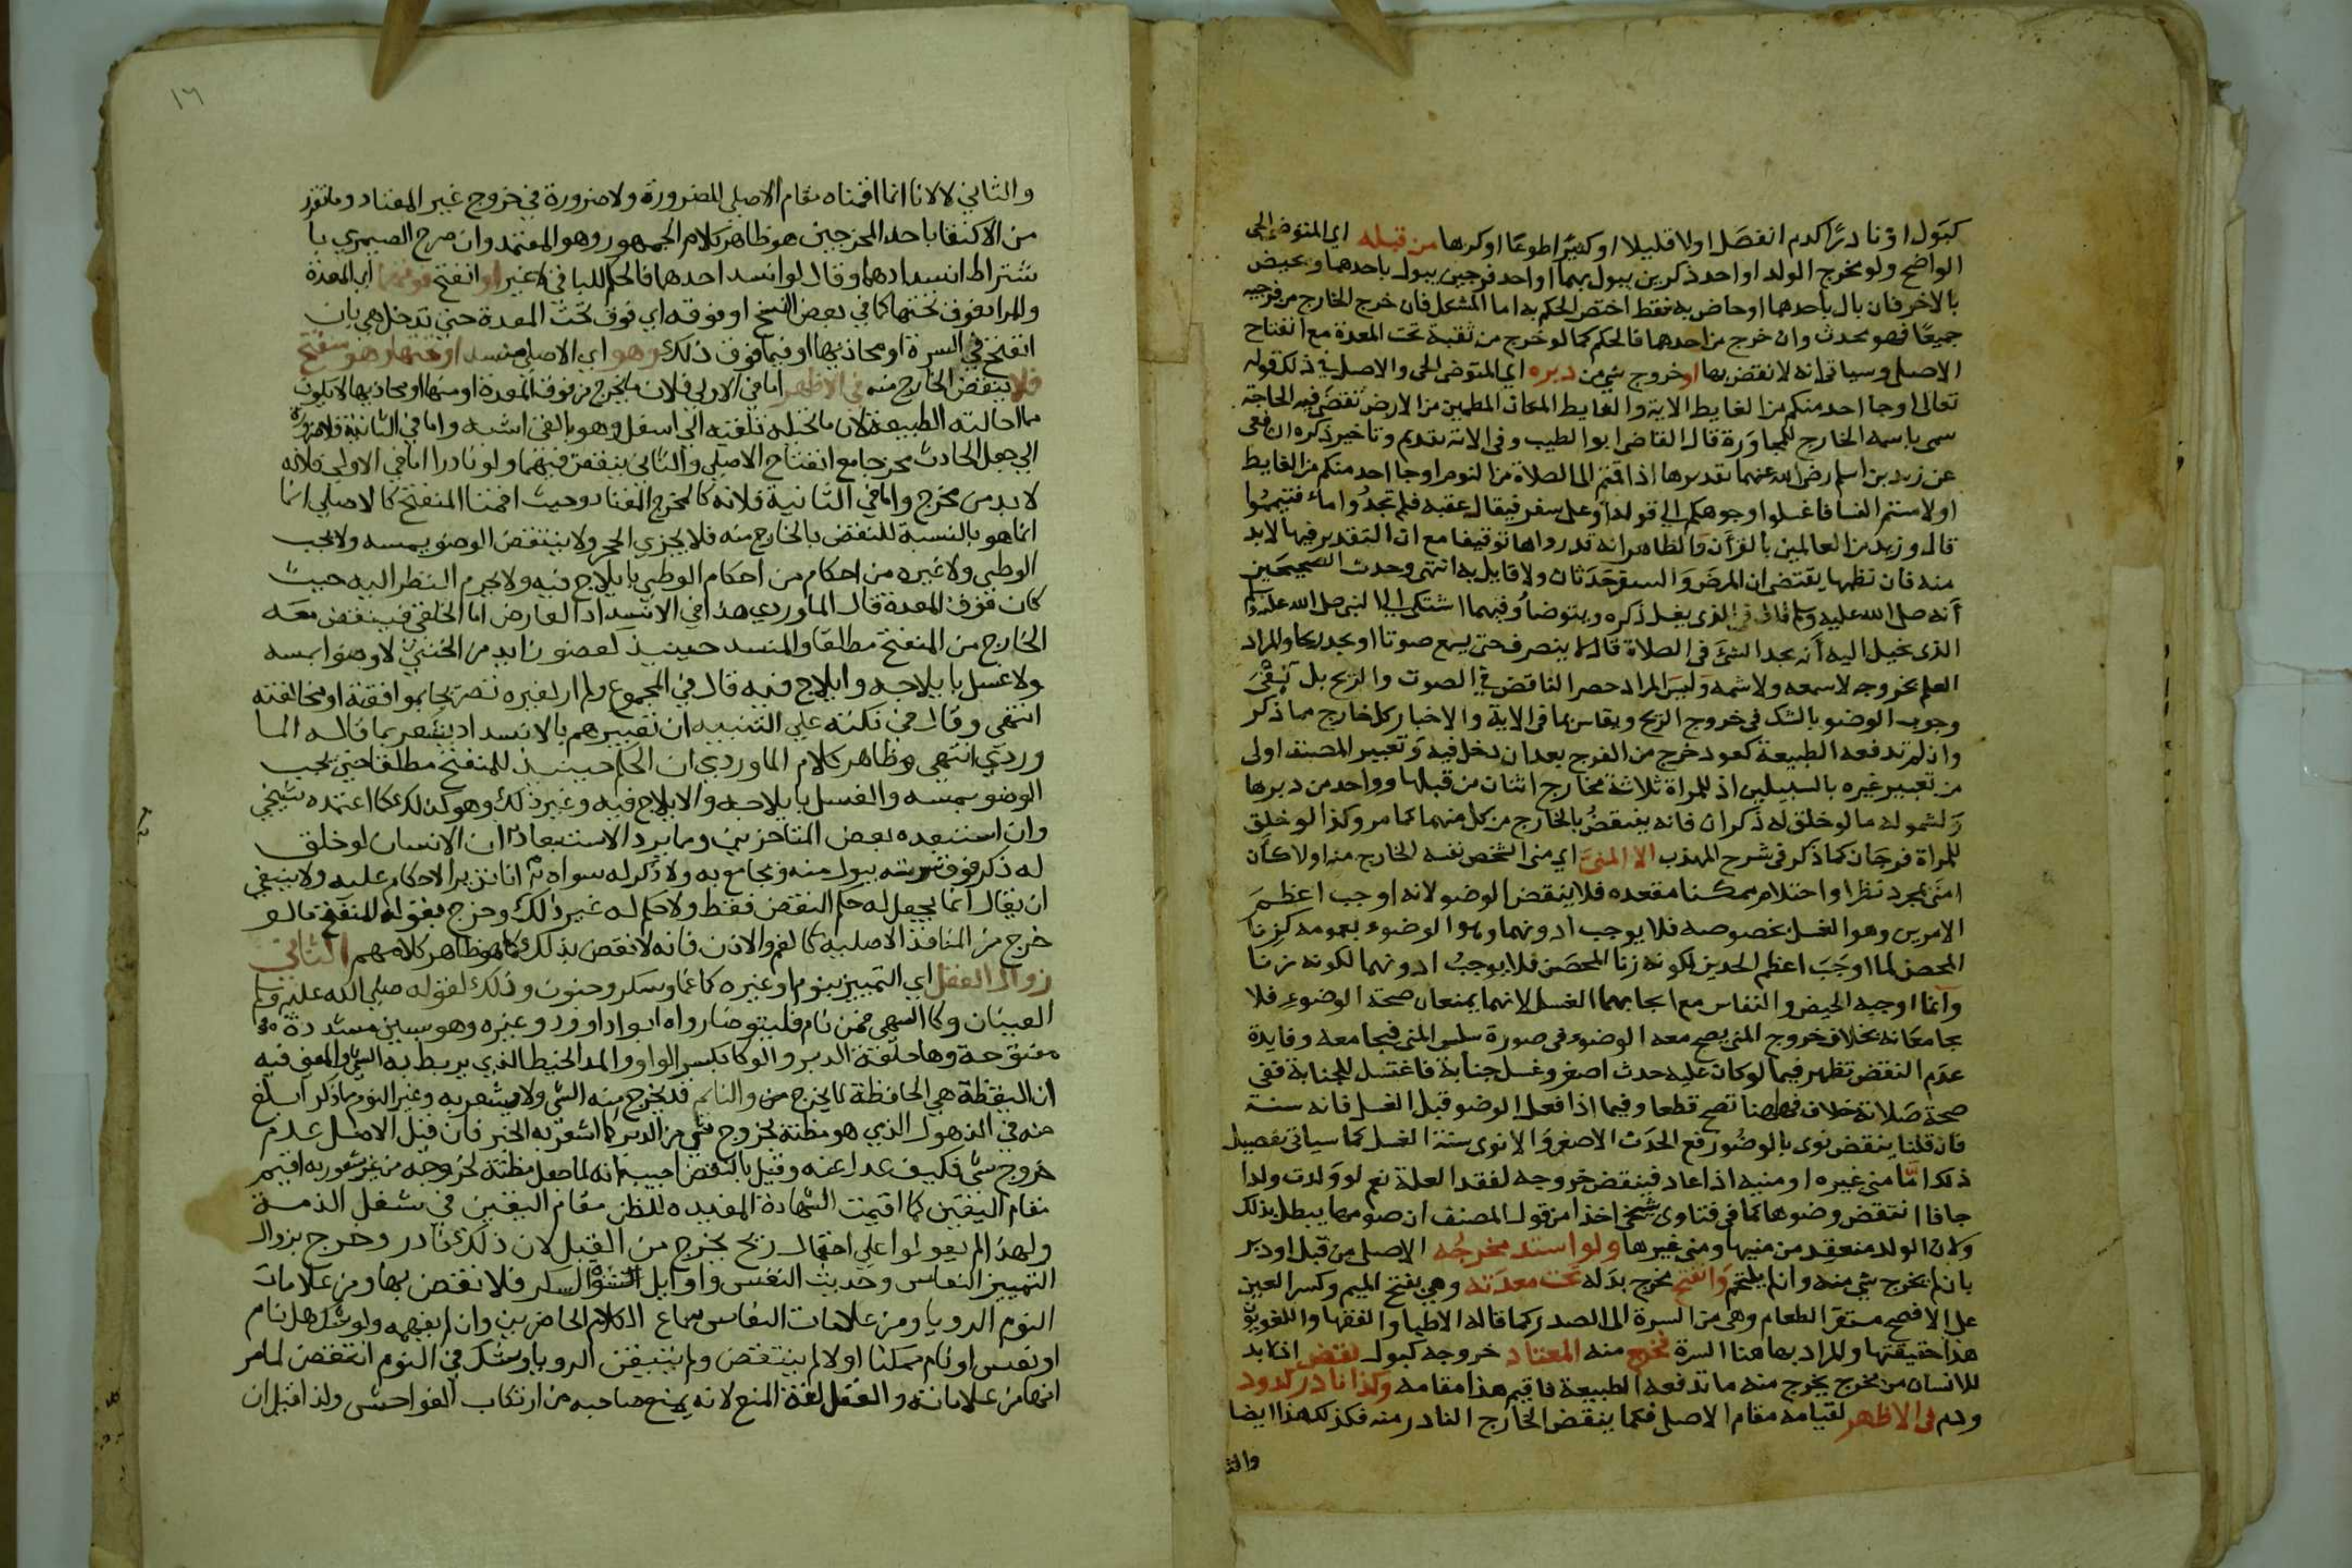 كبول او نادرًا كدم انفصل اولا قليلا او كثيرًا طوعًا او كرها من قبله اي المتوضى الحي
الواضح ولو مخرج الولد او احد ذكرين يبول بهما او احد فرجين يبول باحدهما ويحيض
بالاخر فان بال باحدهما او حاض به فقط اختص الحكم به اما المشكل فان خرج الخارج من فرجيه
جميعًا فهو محدث وان خرج من احدهما فالحكم كما لو خرج من ثقبة تحت المعدة مع انفتاح
الاصلي وسياتي انه لا نقض بها او خروج شي من دبره اي المتوضى الحي والاصل في ذلك قوله
تعالى او جا احد منكم من الغايط الاية والغايط المكان المطمين من الارض تقضى فيه الحاجة
سمى باسمه الخارج للمجاورة قال القاضى ابو الطيب وفي الاية تقديم وتاخير ذكره الشافعى
عن زيد بن اسلم رضى الله عنهما تقديرها اذا قمتم الى الصلاة من النوم او جا احد منكم من الغايط
او لامستم النسا فاغسلوا وجوهكم الي قوله او على سفر فيقال عقبه فلم تجدوا ماء فتيمموا
قال وزيد من العالمين بالقرآن والظاهر انه قدرها توقيفا مع ان التقدير فيها لابد
منه فان نظمها يقتضى ان المرض والسفر حدثان ولا قايل به انتهى وحديث الصحيحين
أنه صلى الله عليه وسلم قال في الذى يغسل ذكره ويتوضأ وفيهما اشتكى الى النبى صلى الله عليه وسلم
الذى يخيل اليه أنه يجد الشئ فى الصلاة قال لا ينصرف حتى يسمع صوتا او يجد ريحا والمراد
العلم بخروجه لا سمعه ولا شمه وليس المراد حصر الناقض في الصوت والريح بل نفى
وجوب الوضو بالشك فى خروج الريح ويقاس بما فى الاية والاخبار كل خارج مما ذكر
وان لم تدفعه الطبيعة كعود خرج من الفرج بعد ان دخل فيه وتعبير المصنف اولى
من تعبير غيره بالسبيلين اذ للمراة ثلاثة مخارج اثنان من قبلها وواحد من دبرها
ولشموله ما لو خلق له ذكران فانه ينتقض بالخارج من كل منهما كما مر وكذا لو خلق
للمراة فرجان كما ذكر فى شرح المهذب الا المنىَ اي منى الشخص نفسه الخارج منه اولا كأن
امنى بمجرد نظر او احتلام ممكنا مقعده فلا ينقض الوضو لانه اوجب اعظم
الامرين وهو الغسل بخصوصه فلا يوجب ادونهما وهو الوضوء بعمومه كزنا
المحصن لما اوجب اعظم الحدين لكونه زنا المحصن فلا يوجب ادونهما لكونه زنا
وانما اوجبه الحيض والنفاس مع ايجابهما الغسل لانهما يمنعان صحة الوضوء فلا
يجامعانه بخلاف خروج المنى يصح معه الوضوء فى صورة سلس المنى فيجامعه وفايدة
عدم النقض تظهر فيما لو كان عليه حدث اصغر وغسل جنابة فاغتسل للجنابة ففى
صحة صلاته خلاف فههنا تصح قطعا وفيما اذا فعل الوضو قبل الغسل فانه سنة
فان قلنا ينقض نوى بالوضو رفع الحدث الاصغر والا نوى سنة الغسل كما سياتى تفصيل
ذلك امّا منى غيره او منيه اذا عاد فينقض خروجه لفقد العلة نعم لو ولدت ولدا
جافا انتقض وضوها كما فى فتاوى شيخى اخذا من قول المصنف ان صومها يبطل بذلك
ولان الولد منعقد من منيها ومنى غيرها ولو انسد مخرجُه الاصلى من قبل او دبر
بان لم يخرج شي منه وان لم يلتحم وَانفتح مخرج بدَله تحت معدته وهى بفتح الميم وكسر العين
على الافصح مستقر الطعام وهى من السرة الى الصدر كما قاله الاطبا والفقها واللغويون
هذا حقيقتها والمراد بها هنا السرة فخرج منه المعتاد خروجه كبول نقض اذ لابد
للانسان من مخرج يخرج منه ما تدفعه الطبيعة فاقيم هذا مقامه وكذا نادر كدود
ودم فى الاظهر لقيامه مقام الاصلى فكما ينقض الخارج النادر منه فكذلك هذا ايضا
والثا
١٦
والثاني لا لانا انما اقمناه مقام الاصلي للضرورة ولا ضرورة في خروج غير المعتاد وما تقرر
من الاكتفا باحد المخرجين هو ظاهر كلام الجمهور وهو المعتمد وان صرح الصيمري با
شتراط انسدادهما وقال لو انسد احدهما فالحكم للباقي لا غير او انفتح فوقها اي المعدة
والمراد بفوق تحتها كما في بعض النسخ او فوقه اي فوق تحت المعدة حتى تدخل هي بان
انفتح في السرة او محاذيها او فيما فوق ذلك وهو اي الاصلي منسد او تحتها وهو منفتح
فلا ينقض الخارج منه في الاظهر اما في الاولي فلان ما يخرج من فوق المعدة او منها او محاذيها لا يكون
مما احالته الطبيعة لان ما تحيله تلقيه الي اسفل وهو بالقي اشبه واما في الثانية فلا ضرورة
الي جعل الحادث مخرجا مع انفتاح الاصلي والثاني ينقض فيهما ولو نادرا اما في الاولي فلانه
لابد من مخرج واما في الثانية فلانه كالمخرج المعتاد وحيث اقمنا المنفتح كالاصلي انما
انما هو بالنسبة للنقض بالخارج منه فلا يجزي الحجر ولا ينتقض الوضو بمسه ولا يجب
الوطي ولا غيره من احكام من احكام الوطي بايلاج فيه ولا يحرم النظر اليه حيث
كان فوق المعدة قال الماوردي هذا في الانسداد العارض اما الخلقي فينقض معه
الخارج من المنفتح مطلقا والمنسد حينيذ كعضو زايد من الخنثى لا وضو بمسه
ولا غسل بايلاجه وايلاج فيه قال في المجموع ولم ار لغيره تصريحا بموافقته او مخالفته
انتهي وقال في نكته علي التنبيه ان تعبيرهم بالانسداد يشعر بما قاله الما
وردي انتهي وظاهر كلام الماوردي ان الحكم حينيذ للمنفتح مطلقا حتي يجب
الوضو بمسه والغسل بايلاجه والايلاج فيه وغير ذلك وهو كذلك كما اعتمده شيخي
وان استبعده بعض المتاخرين ومما يرد الاستبعاد ان الانسان لو خلق
له ذكر فوق سرته يبول منه ويجامع به ولا ذكر له سواه انا ندير الاحكام عليه ولا ينبغي
ان يقال انما يجعل له حكم النقض فقط ولا حكم له غير ذلك وخرج بقوله المنفتح ما لو
خرج من المنافذ الاصلية كالفم والاذن فانه لا نقض بذلك كما هو ظاهر كلامهم الثاني
زوال العقل اي التمييز بنوم او غيره كاغما وسكر وجنون وذلك لقوله صلي الله عليه وسلم
العينان وكا السهي فمن نام فليتوضا رواه ابو داوود وغيره وهو بسين مشددة
مفتوحة وها حلقة الدبر والوكا بكسر الواو والمد الخيط الذي يربط به الشي والمعني فيه
ان اليقظة هي الحافظة لما يخرج من والنايم قد يخرج منه الشي ولا يشعر به وغير النوم مما ذكر ابلغ
منه في الذهول الذي هو مظنة لخروج شي من الدبر كما اشعر به الخبر فان قيل الاصل عدم
خروج شي فكيف عدل عنه وقيل بالنقض اجيب بانه لما جعل مظنة لخروجه من غير شعور به اقيم
مقام اليقين كما اقيمت الشهادة المفيده للظن مقام اليقين في شغل الذمة
ولهذا لم يعولوا علي احتمال ريح يخرج من القبل لان ذلك نادر وخرج بزوال
التمييز النعاس وحديث النفس واوايل نشوة السكر فلا نقض بها ومن علامات
النوم الرويا ومن علامات النعاس سماع الكلام الحاضرين وان لم يفهمه ولو شك هل نام
او نعس او نام ممكنا او لا لم ينتقض ولو تيقن الرويا وشك في النوم انتقض لما مر
انها من علاماته والعقل لغة المنع لانه يمنع صاحبه من ارتكاب الفواحش ولذا قيل ان